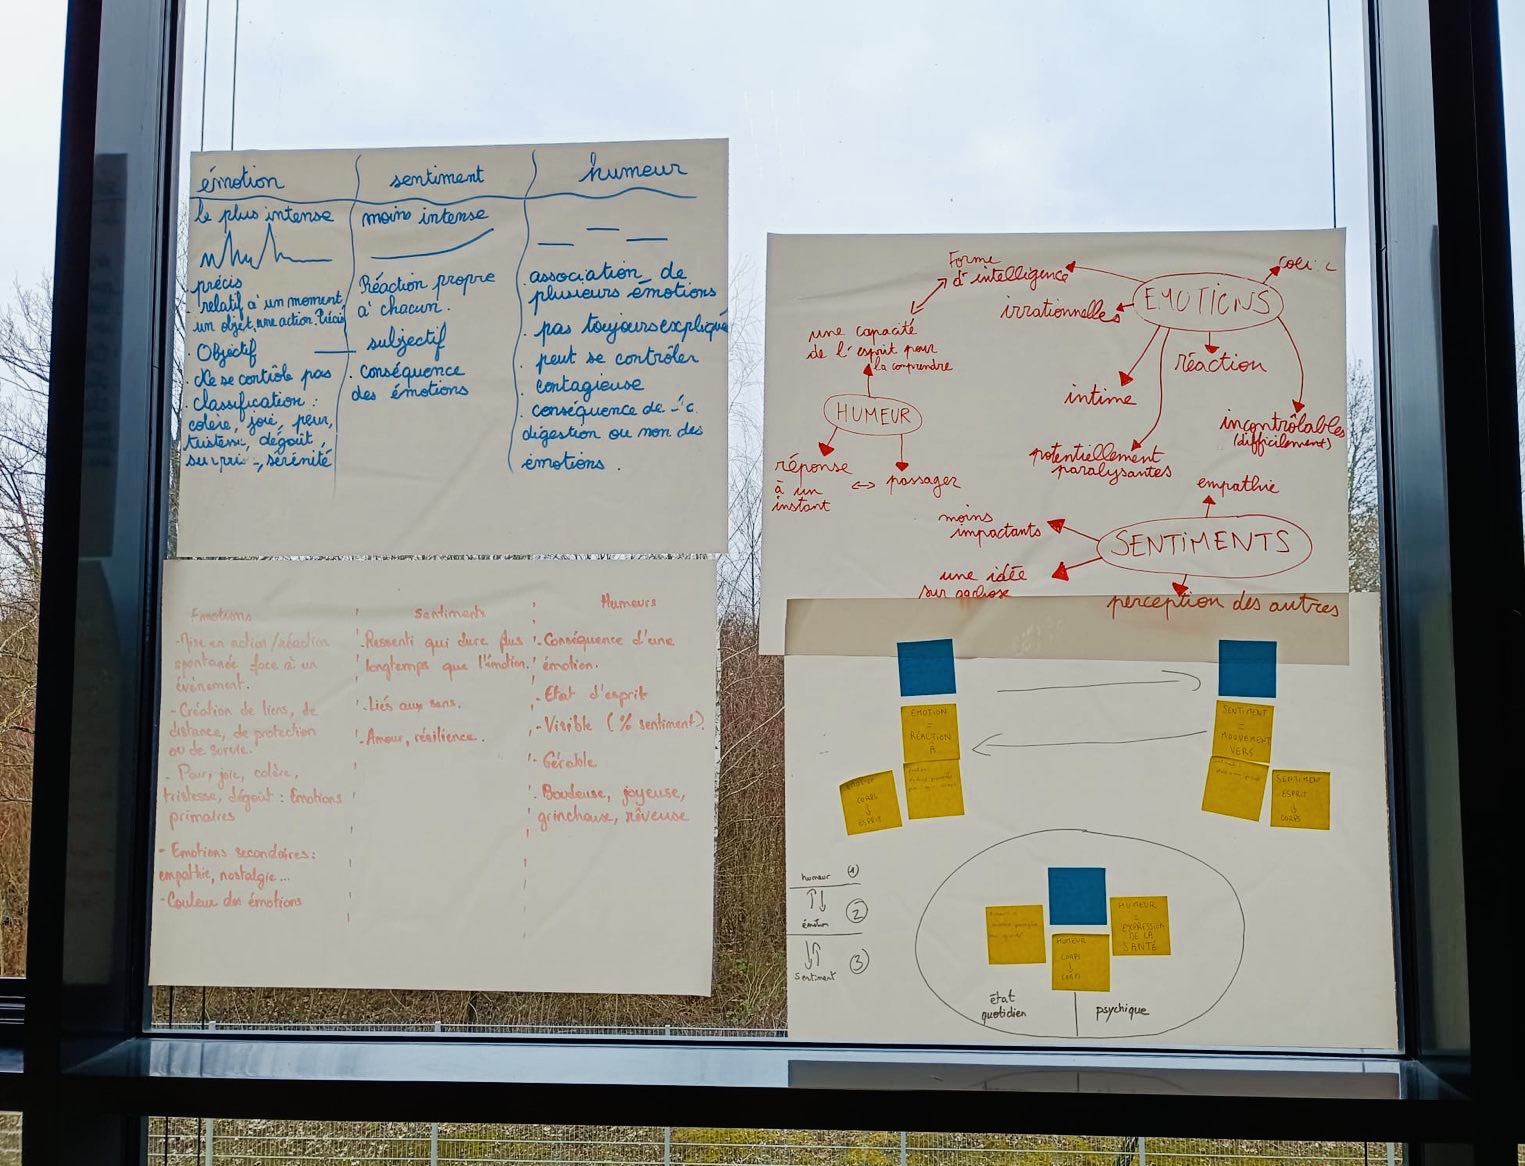 émotion
le plus intense
précis
relatif à un moment,
un objet, une action. Précis
. Objectif
. Ne se contrôle pas
. classification :
colère, joie, peur,
tristesse, dégoût,
sérénité
sentiment
moins intense
Réaction propre
à chacun.
subjectif
. conséquence
des émotions
humeur
. association de
plusieurs émotions
. pas toujours expliqué
. peut se contrôler
. contagieuse
. conséquence de
digestion ou non des
émotions .
EMOTIONS
Forme
d'intelligence
irrationnelles
intime
réaction
potentiellement
paralysantes
incontrôlables
(difficilement)
une capacité
de l'esprit pour
la comprendre
HUMEUR
réponse
à un
instant
passager
SENTIMENTS
empathie
moins
impactants
une idée
sur
perception des autres
Emotions
- Mise en action/réaction
spontanée face à un
évènement.
- Création de liens, de
distance, de protection
ou de survie.
- Peur, joie, colère,
tristesse, dégoût : Emotions
primaires
- Emotions secondaires :
empathie, nostalgie...
- Couleur des émotions
Sentiments
- Ressenti qui dure plus
longtemps que l'émotion.
- Liés aux sens.
- Amour, résilience.
Humeurs
- Conséquence d'une
émotion.
- Etat d'esprit
- Visible (% sentiment).
- Gérable
- Boudeuse, joyeuse,
grincheuse, rêveuse
EMOTION
=
RÉACTION
À
CORPS
↓
ESPRIT
SENTIMENT
=
MOUVEMENT
VERS
SENTIMENT
ESPRIT
↓
CORPS
humeur 1
émotion 2
sentiment 3
HUMEUR
=
EXPRESSION
DE LA
SANTÉ
HUMEUR
CORPS
↓
CORPS
état
quotidien
psychique